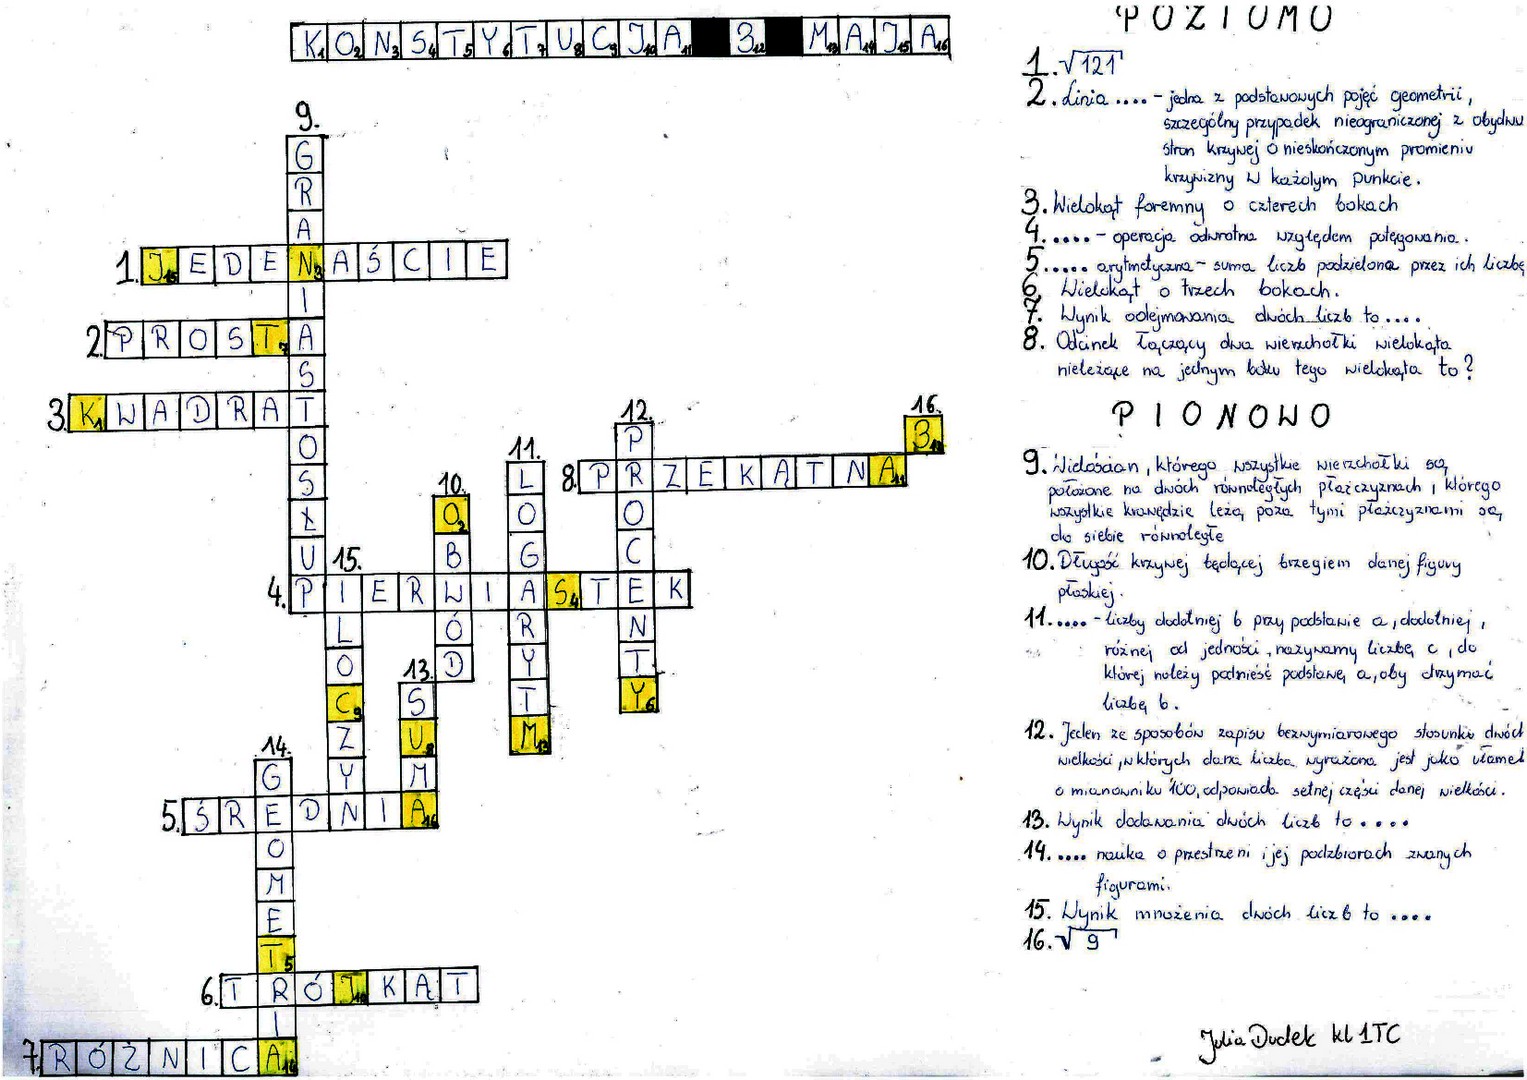 KONSTYTUCJA 3 MAJA
9.
GRANIASTOSŁUP
1. JEDENAŚCIE
2. PROSTA
3. KWADRAT
12.
PROCENTY
16.
3
11.
LOGARYTM
8. PRZEKĄTNA
10.
OBWÓD
15.
ILOCZYN
4. PIERWIASTEK
13.
SUMA
14.
GEOMETRIA
5. ŚREDNIA
6. TRÓJKĄT
7. RÓŻNICA
POZIOMO
1. √121
2. Linia .... - jedna z podstawowych pojęć geometrii,
szczególny przypadek nieograniczonej z obydwu
stron krzywej o nieskończonym promieniu
krzywizny w każdym punkcie.
3. Wielokąt foremny o czterech bokach
4. .... - operacja odwrotna względem potęgowania.
5. .... arytmetyczna - suma liczb podzielona przez ich liczbę
6. Wielokąt o trzech bokach.
7. Wynik odejmowania dwóch liczb to ....
8. Odcinek łączący dwa wierzchołki wielokąta
nieleżące na jednym boku tego wielokąta to?
PIONOWO
9. Wielościan, którego wszystkie wierzchołki są
położone na dwóch równoległych płaszczyznach i którego
wszystkie krawędzie leżą poza tymi płaszczyznami są
do siebie równoległe
10. Długość krzywej będącej brzegiem danej figury
płaskiej.
11. .... - liczby dodatniej b przy podstawie a, dodatniej,
różnej od jedności, nazywamy liczbę c, do
której należy podnieść podstawę a, aby otrzymać
liczbę b.
12. Jeden ze sposobów zapisu bezwymiarowego stosunku dwóch
wielkości, w których dana liczba wyrażona jest jako ułamek
o mianowniku 100, odpowiada setnej części danej wielkości.
13. Wynik dodawania dwóch liczb to ....
14. .... nauka o przestrzeni i jej podzbiorach zwanych
figurami.
15. Wynik mnożenia dwóch liczb to ....
16. √9
Julia Dudek kl 1TC